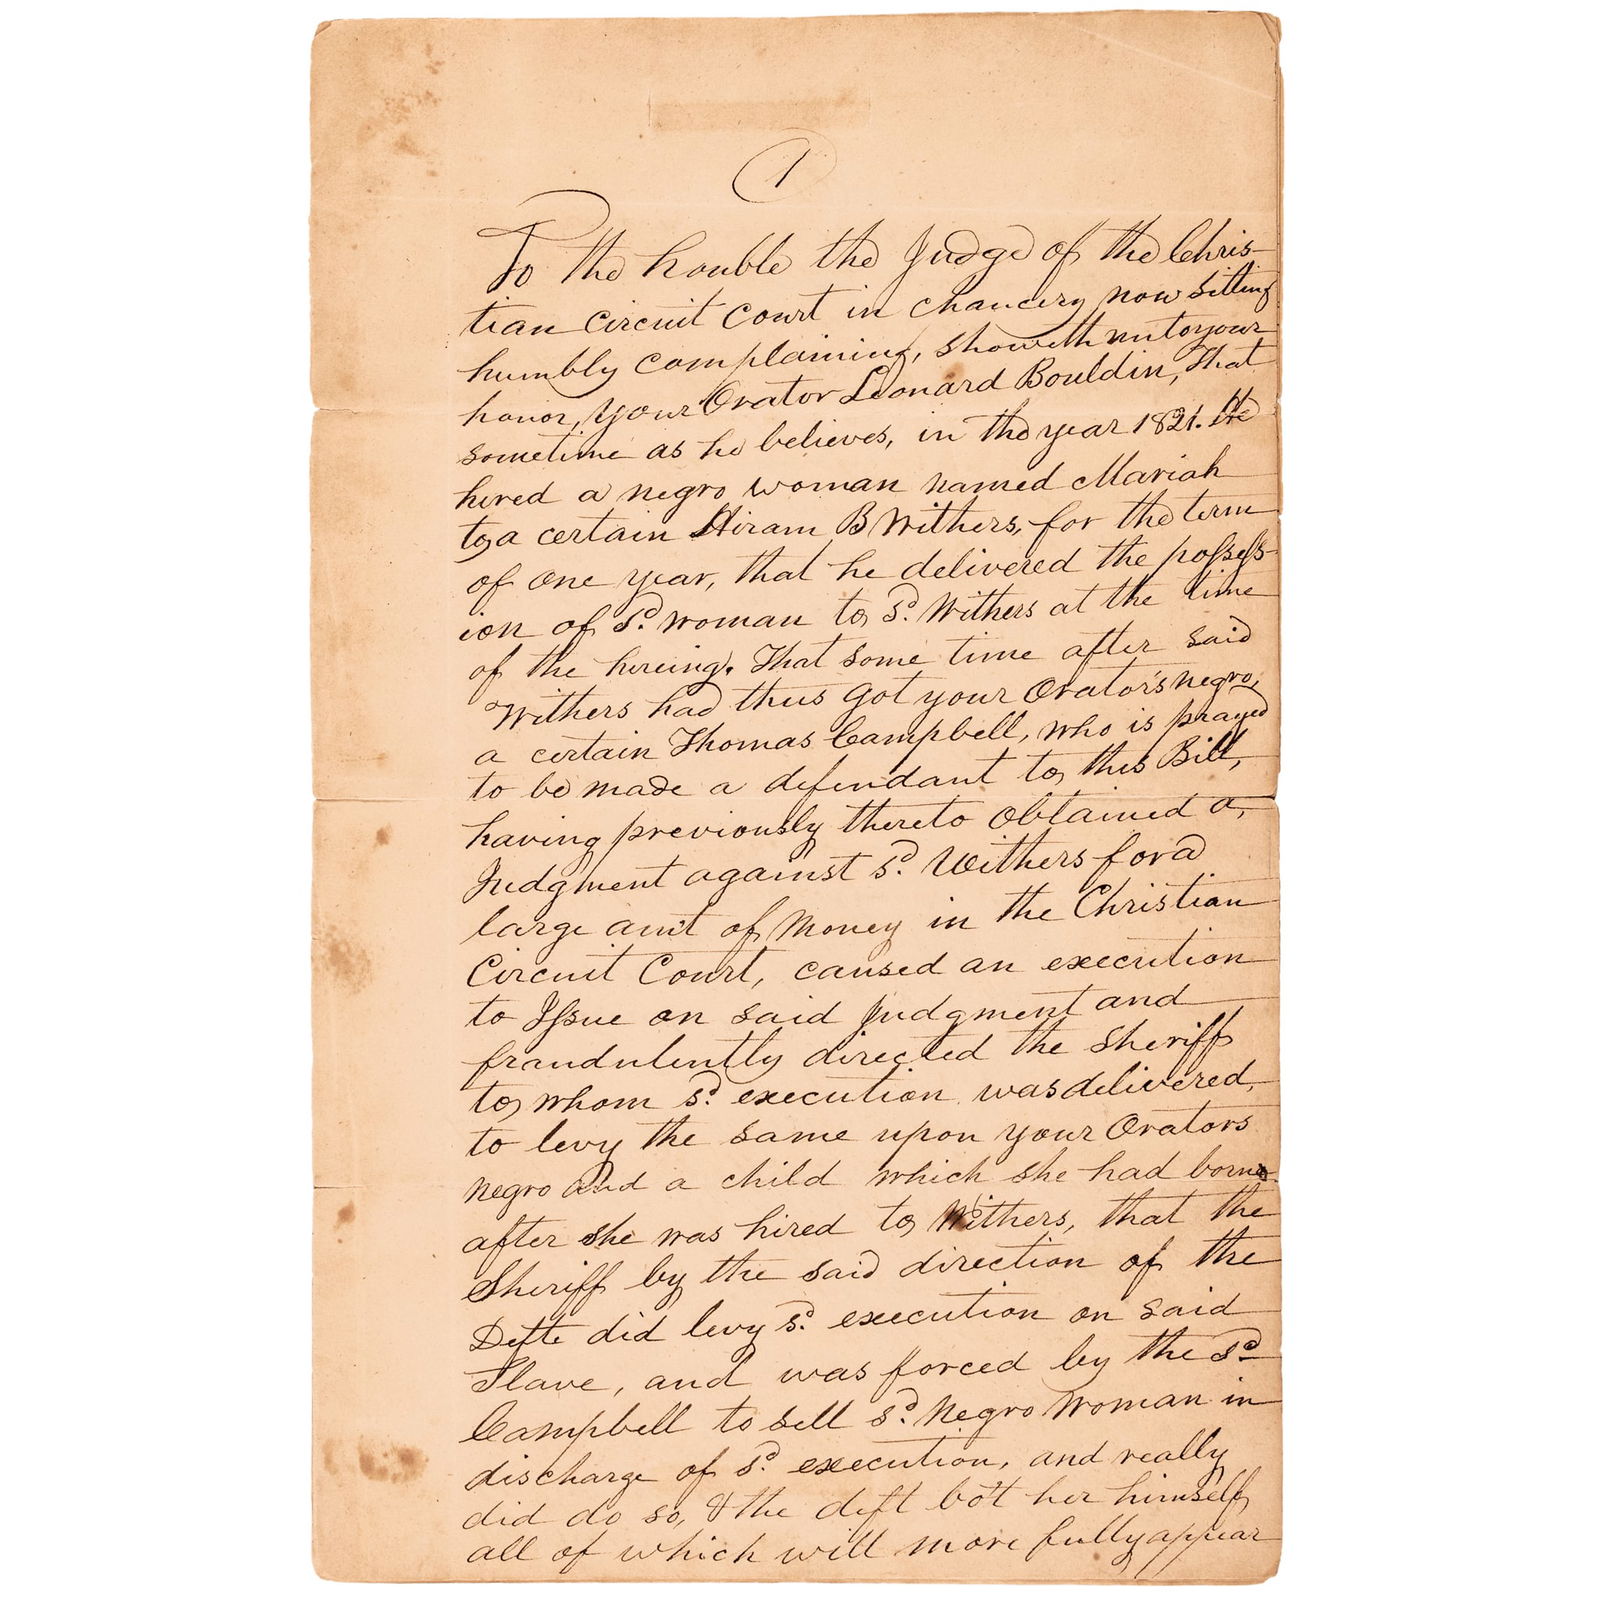 1
To the honble the Judge of the Chris-
tian Circuit Court in chancery now sitting
humbly complaining, showeth unto your
honor, your Orator Leonard Bouldin, That
sometime as he believes, in the year 1821. He
hired a negro woman named Mariah
to a certain Hiram B Withers, for the term
of one year, that he delivered the possess-
ion of sd. woman to sd. Withers at the time
of the hireing. That some time after said
Withers had thus got your Orator's negro,
a certain Thomas Campbell, who is prayed
to be made a defendant to this Bill,
having previously thereto obtained a
Judgment against sd. Withers for a
large amt of Money in the Christian
Circuit Court, caused an execution
to Issue on said Judgment and
fraudulently directed the sheriff
to whom sd. execution was delivered,
to levy the same upon your Orators
negro and a child which she had borne
after she was hired to Withers, that the
Sheriff by the said direction of the
Defte did levy sd. execution on said
Slave, and was forced by the sd
Campbell to sell sd. Negro woman in
discharge of sd. execution, and really
did do so, & the deft bo't her himself,
all of which will more fully appear